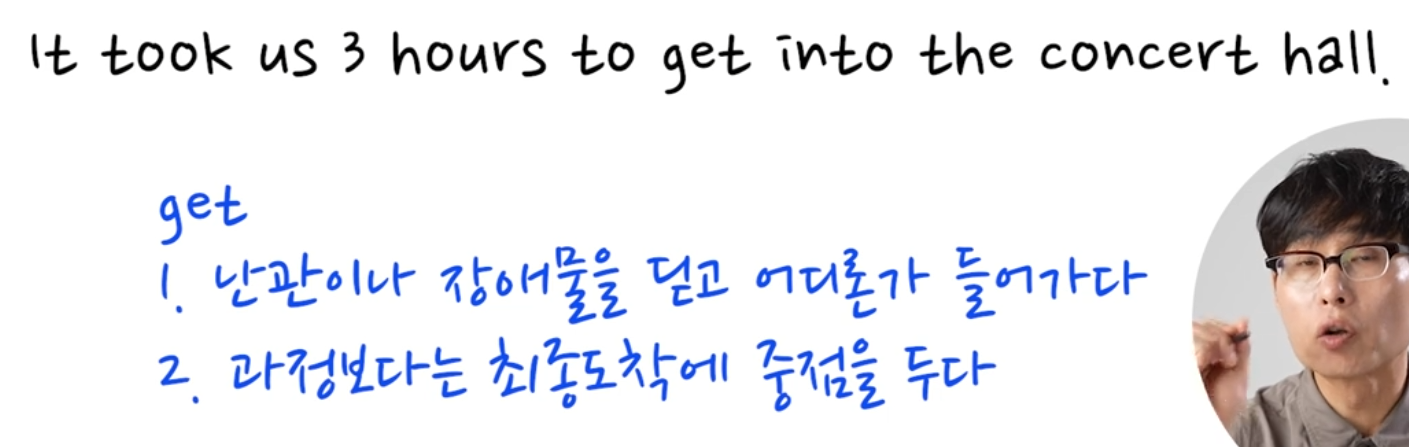 It took us 3 hours to get into the concert hall.
get
1. 난관이나 장애물을 딛고 어디론가 들어가다
2. 과정보다는 최종도착에 중점을 두다